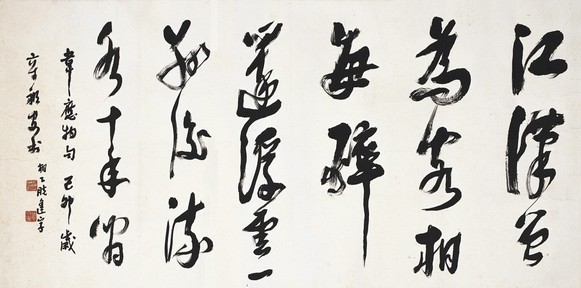 江漢曾
為客相
每醉
還浮雲一
別後流
水十年間
韋應物句 己卯歲